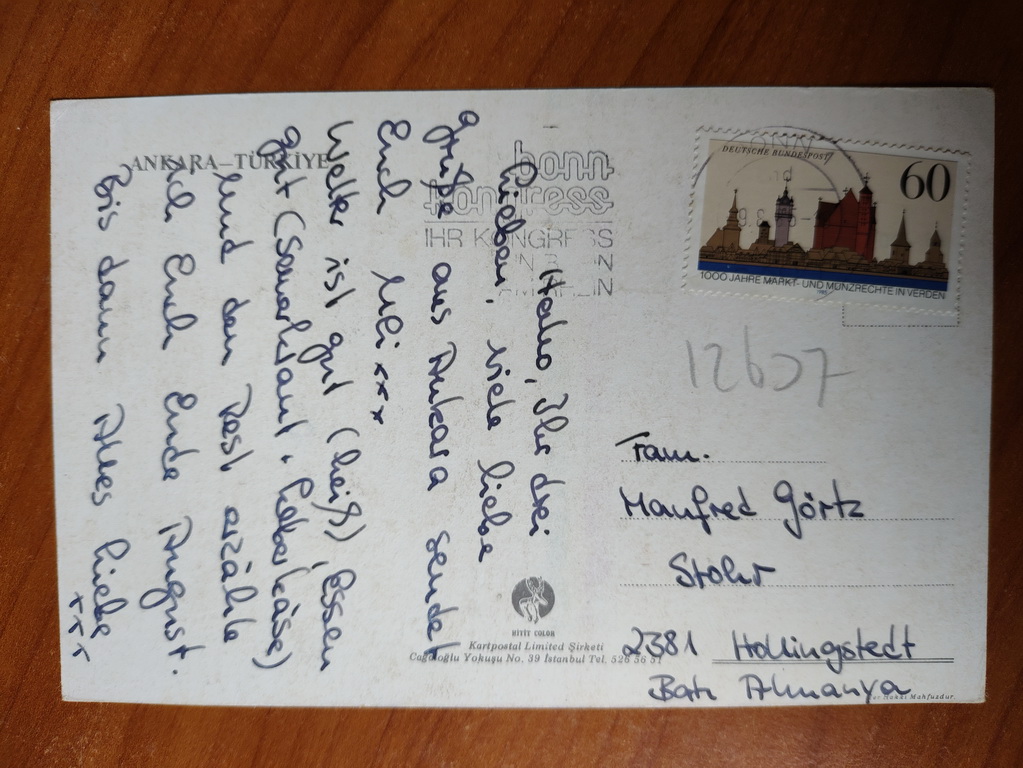 ANKARA – TÜRKİYE
bonn
kongress
IHR KONGRESS
Hallo, Ihr drei
Lieben, viele liebe
Grüße aus Ankara sendet
Euch Uli xxx
Wetter ist gut (heiß), Essen
gut (Sauerkraut, Leberkäse)
Und den Rest erzähle
ich Euch Ende August.
Bis dann Alles Liebe
xxx
DEUTSCHE BUNDESPOST
60
1000 JAHRE MARKT- UND MÜNZRECHTE IN VERDEN
12637
Fam.
Manfred Görtz
Stohr
2381 Hollingstedt
Batı Almanya
HİTİT COLOR
Kartpostal Limited Şirketi
Cağaloğlu Yokuşu No. 39 İstanbul Tel. 526 56 57
Her Hakkı Mahfuzdur.